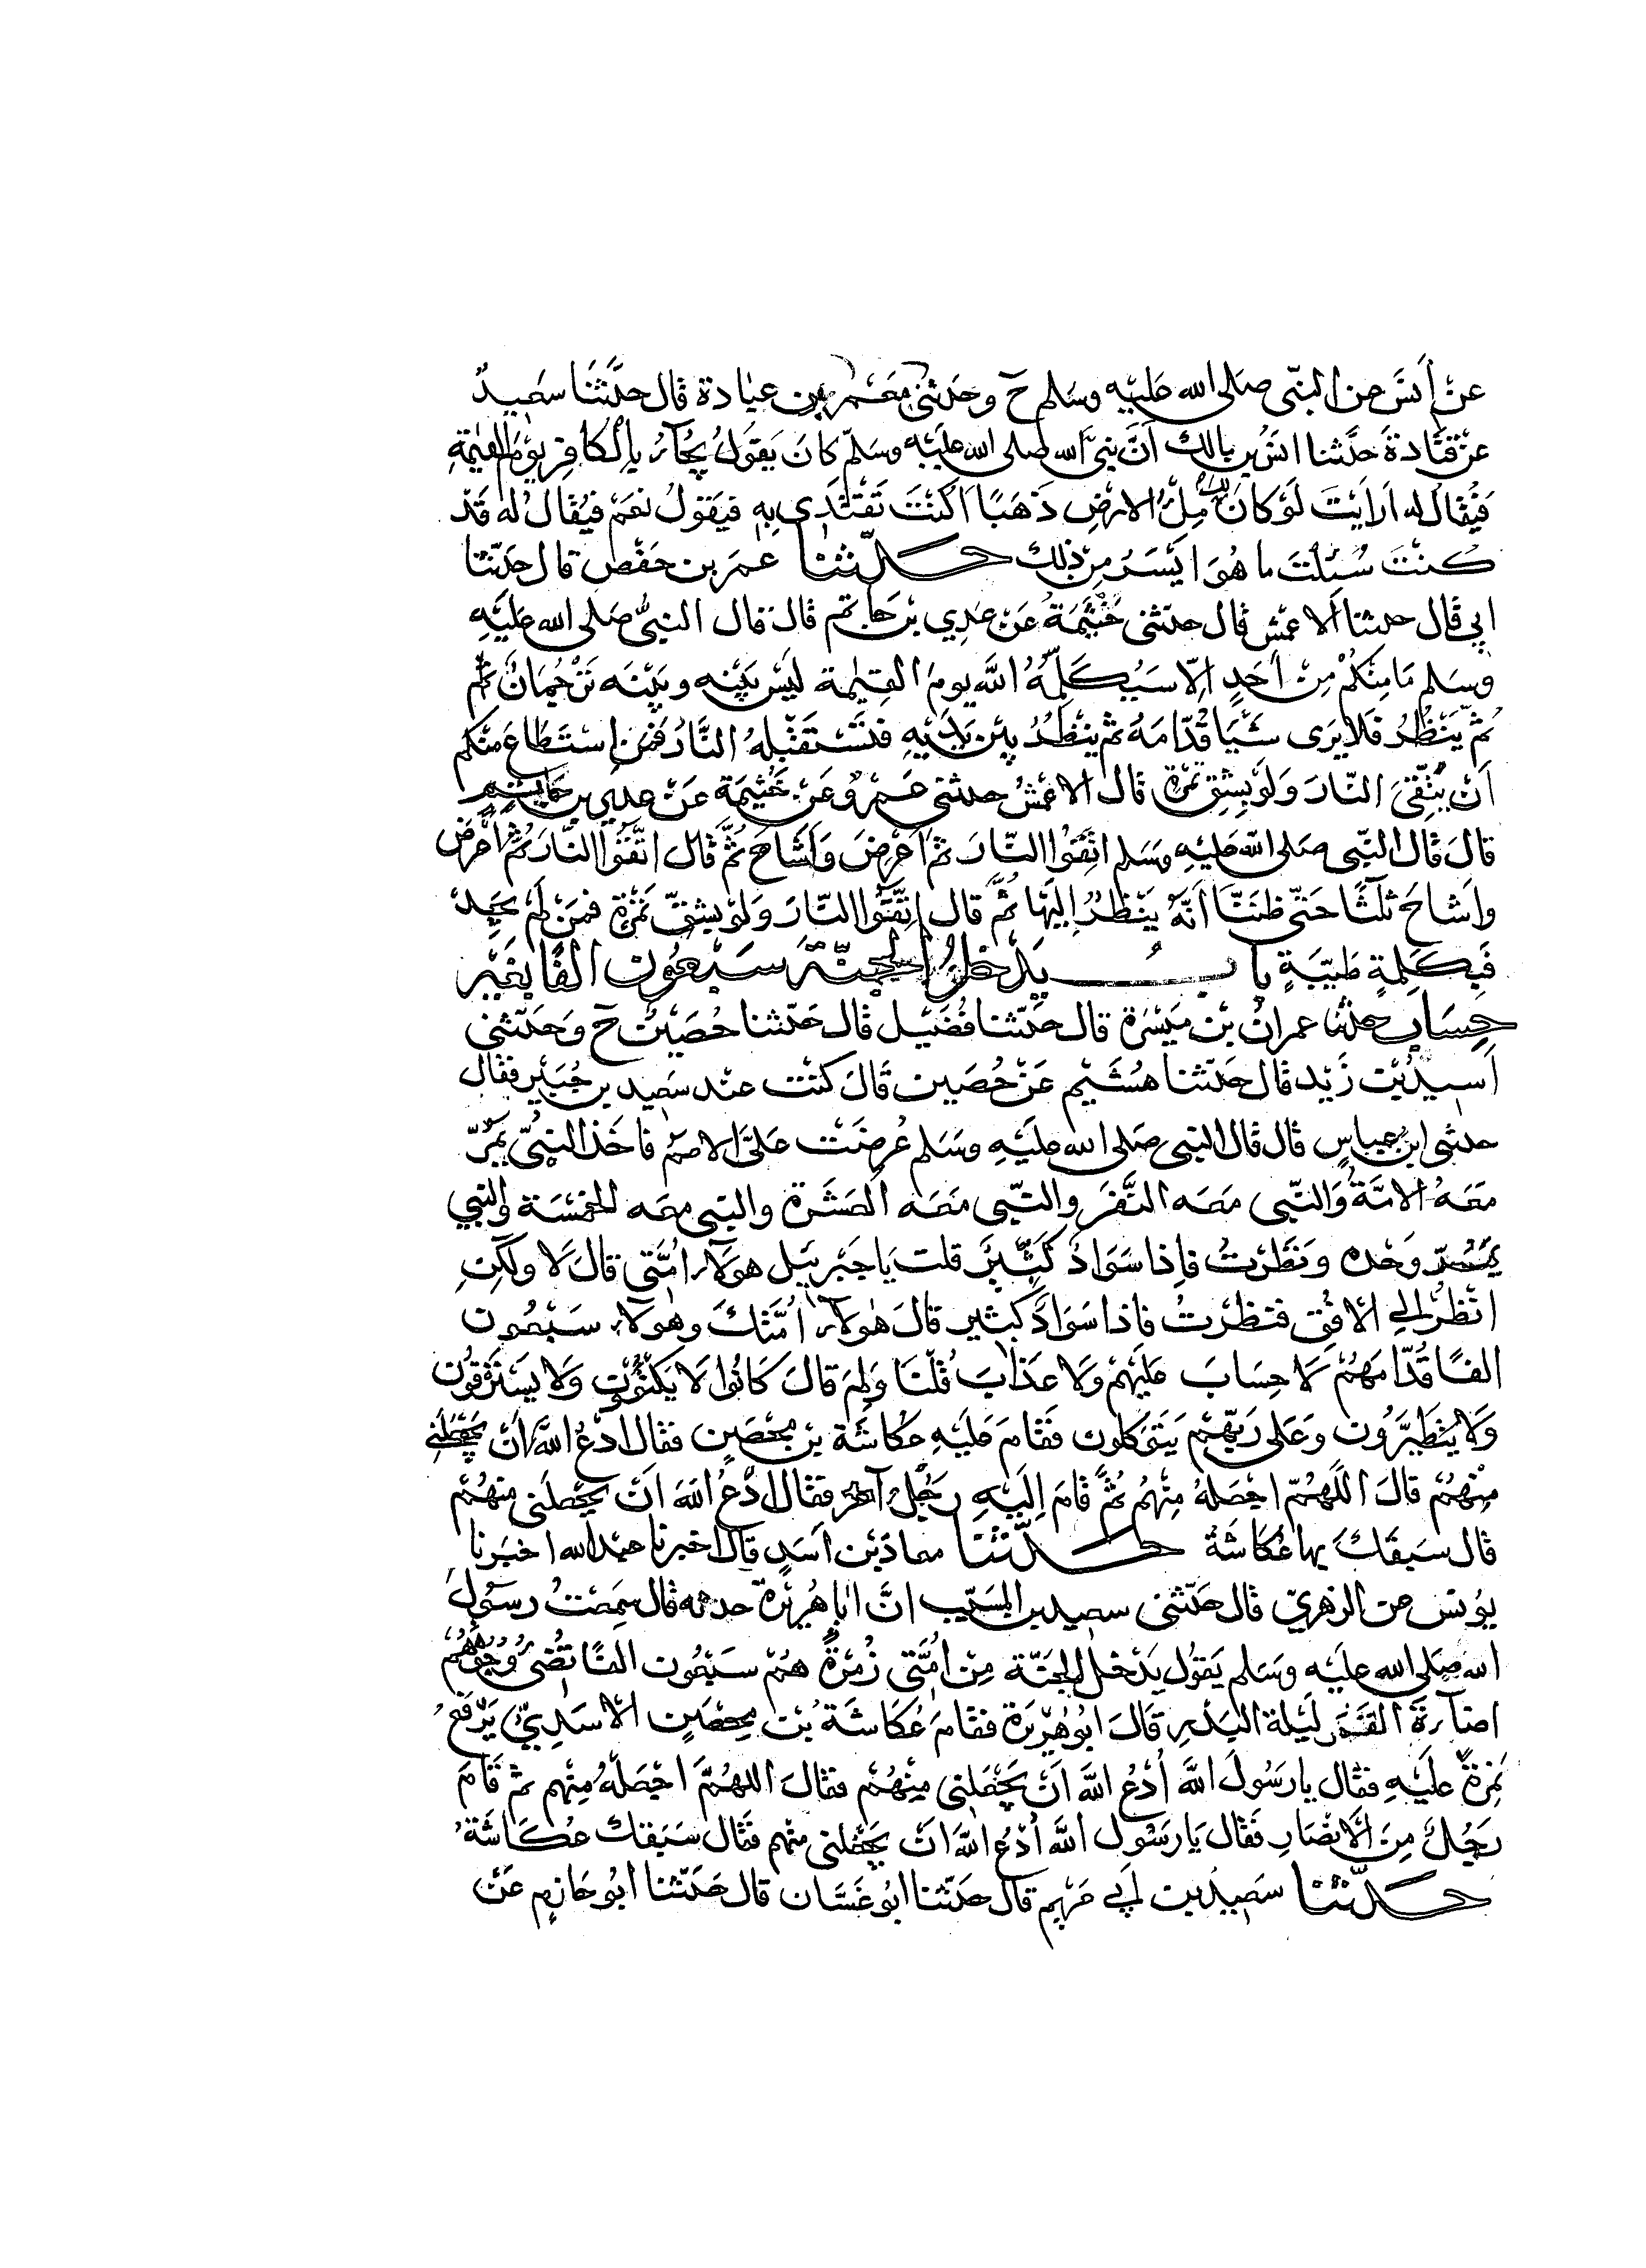 عن أنس عن النبي صلى الله عليه وسلم ح وحدثني معمر بن عبادة قال حدثنا سعيد
عن قتادة حدثنا انس بن مالك أن نبي الله صلى الله عليه وسلم كان يقول يجآء بالكافر يوم القيمة
فيقال له ارايت لو كان لك ملء الارض ذهبا اكنت تفتدي به فيقول نعم فيقال له قد
كنت سئلت ما هو ايسر من ذلك حدثنا عمر بن حفص قال حدثنا
ابي قال حدثنا الاعمش قال حدثني خيثمة عن عدي بن حاتم قال قال النبي صلى الله عليه
وسلم ما منكم من أحد الا سيكلمه الله يوم القيمة ليس بينه وبينه ترجمان ثم
ثم ينظر فلا يرى شيا قدامه ثم ينظر بين يديه فتستقبله النار فمن استطاع منكم
أن يتقي النار ولو بشق تمرة قال الاعمش حدثني عمرو عن خثيمة عن عدي بن حاتم
قال قال النبي صلى الله عليه وسلم اتقوا النار ثم اعرض وأشاح ثم قال اتقوا النار ثم أعرض
واشاح ثلثا حتى ظننا أنه ينظر إليها ثم قال اتقوا النار ولو بشق تمرة فمن لم يجد
فبكلمة طيبة باب يدخل الجنة سبعون الفا بغير
حساب حدثنا عمران بن ميسرة قال حدثنا فضيل قال حدثنا حصين ح وحدثني
اسيد بن زيد قال حدثنا هشيم عن حصين قال كنت عند سعيد بن جبير فقال
حدثني ابن عباس قال قال النبي صلى الله عليه وسلم عرضت على الامم فاخذ النبي يمر
معه الامة والنبي معه النفر والنبي معه العشرة والنبي معه الخمسة والنبي
يمر وحده ونظرت فإذا سواد كثير قلت يا جبرئيل هولآء امتي قال لا ولكن
انظر الى الافق فنظرت فاذا سواد كثير قال هولآء امتك وهولآء سبعون
الفا قدامهم لا حساب عليهم ولا عذاب قلت ولم قال كانوا لا يكتوون ولا يسترقون
ولا يتطيرون وعلى ربهم يتوكلون فقام عليه عكاشة بن محصن فقال ادع الله أن يجعلني
منهم قال اللهم اجعله منهم ثم قام إليه رجل آخر فقال ادع الله ان يجعلني منهم
قال سبقك بها عكاشة حدثنا معاذ بن اسد قال اخبرنا عبد الله اخبرنا
يونس عن الزهري قال حدثني سعيد بن المسيب ان ابا هريرة حدثه قال سمعت رسول
الله صلى الله عليه وسلم يقول يدخل الجنة من امتي زمرة هم سبعون الفا تضي وجوههم
اضآءة القمر ليلة البدر قال ابو هريرة فقام عكاشة بن محصن الاسدي يرفع
نمرة عليه فقال يا رسول الله أدع الله ان يجعلني منهم فقال اللهم اجعله منهم ثم قام
رجل من الانصار فقال يا رسول الله أدع الله ان يجعلني منهم فقال سبقك عكاشة
حدثنا سعيد بن ابي مريم قال حدثنا ابو غسان قال حدثنا ابو حازم عن